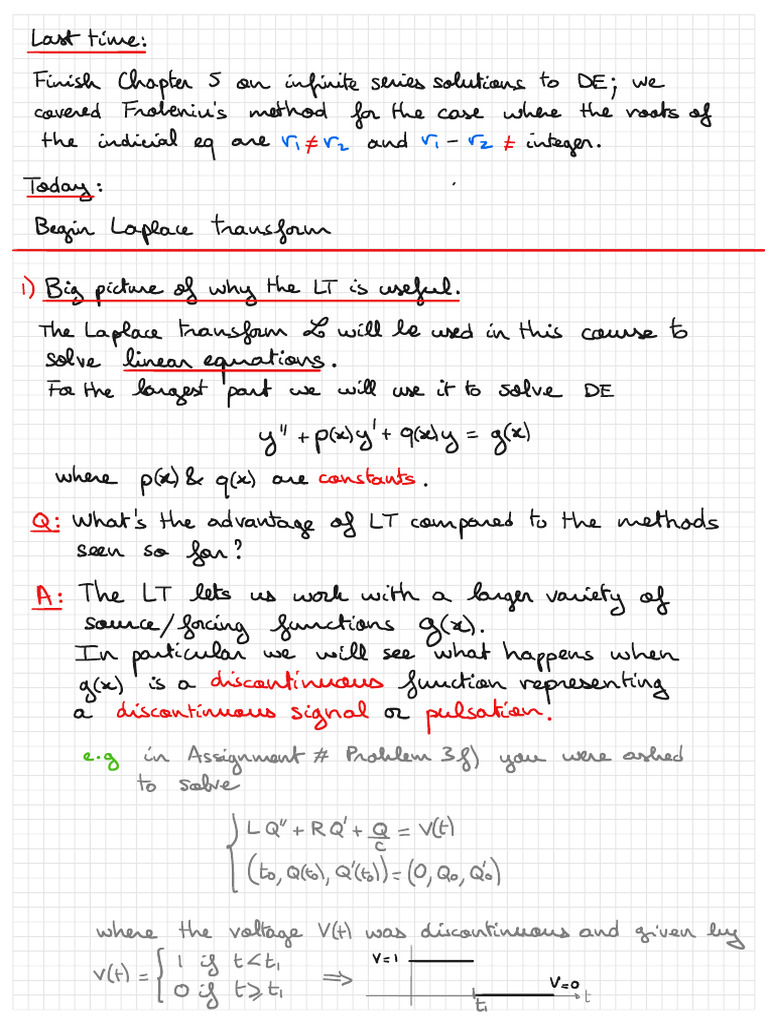 Last time:
Finish Chapter 5 on infinite series solutions to DE; we
covered Frobeniu's method for the case where the roots of
the indicial eq are r₁ ≠ r₂ and r₁ - r₂ ≠ integer.
Today:
Begin Laplace transform
1) Big picture of why the LT is useful.
The Laplace transform ℒ will be used in this course to
solve linear equations.
For the largest part we will use it to solve DE
y'' + p(x)y' + q(x)y = g(x)
where p(x) & q(x) are constants.
Q: What's the advantage of LT compared to the methods
seen so far?
A: The LT lets us work with a larger variety of
source/forcing functions g(x).
In particular we will see what happens when
g(x) is a discontinuous function representing
a discontinuous signal or pulsation.
e.g in Assignment # Problem 3f) you were asked
to solve
LQ'' + RQ' + Q/C = V(t)
(t₀, Q(t₀), Q'(t₀)) = (0, Q₀, Q'₀)
where the voltage V(t) was discontinuous and given by
V(t) = { 1 if t < t₁
0 if t ⩾ t₁
⇒
V=1
V=0
t₁
t